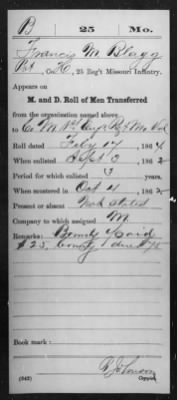 B 25 Mo.
Francis M. Blagg
Pvt, Co. H, 25 Reg't Missouri Infantry.
Appears on
M. and D. Roll of Men Transferred
from the organization named above,
to Co. M 1st Reg't Mo Vol
Roll dated Feby 17, 1864
When enlisted Sept 3, 1862
Period for which enlisted 3 years.
When mustered in Oct 4, 1862
Present or absent Not stated
Company to which assigned M
Remarks: Bounty paid
$25, bounty due $75
Book mark:
(542) Copyist.